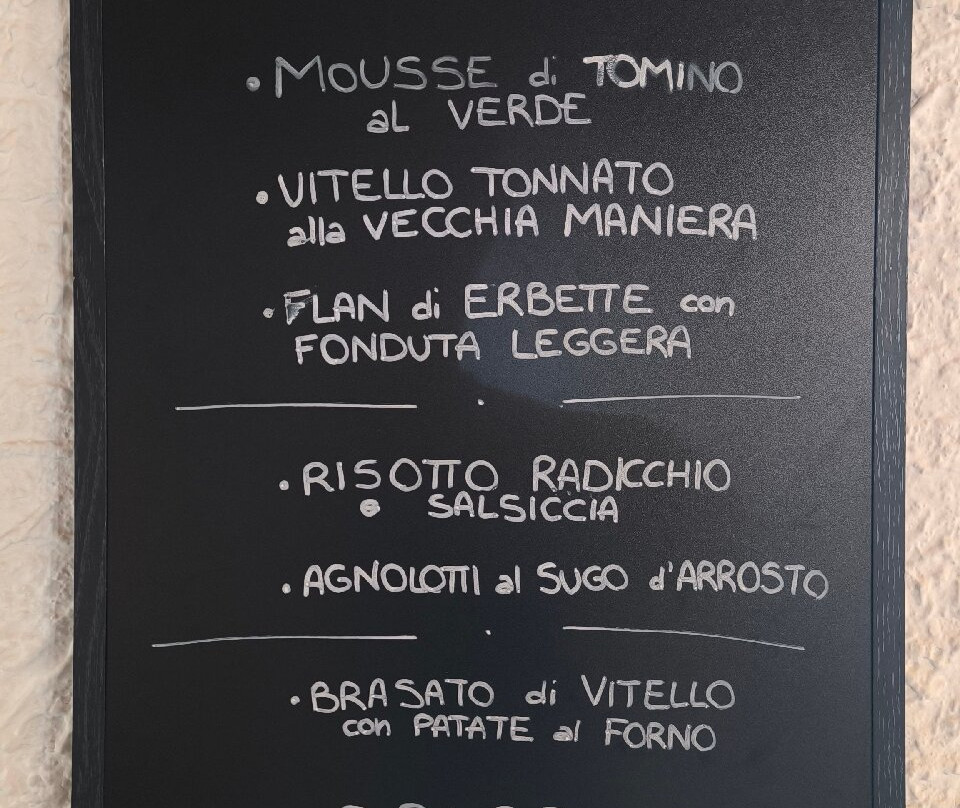 • MOUSSE di TOMINO
al VERDE
• VITELLO TONNATO
alla VECCHIA MANIERA
• FLAN di ERBETTE con
FONDUTA LEGGERA
• RISOTTO RADICCHIO
e SALSICCIA
• AGNOLOTTI al SUGO d'ARROSTO
• BRASATO di VITELLO
con PATATE al FORNO